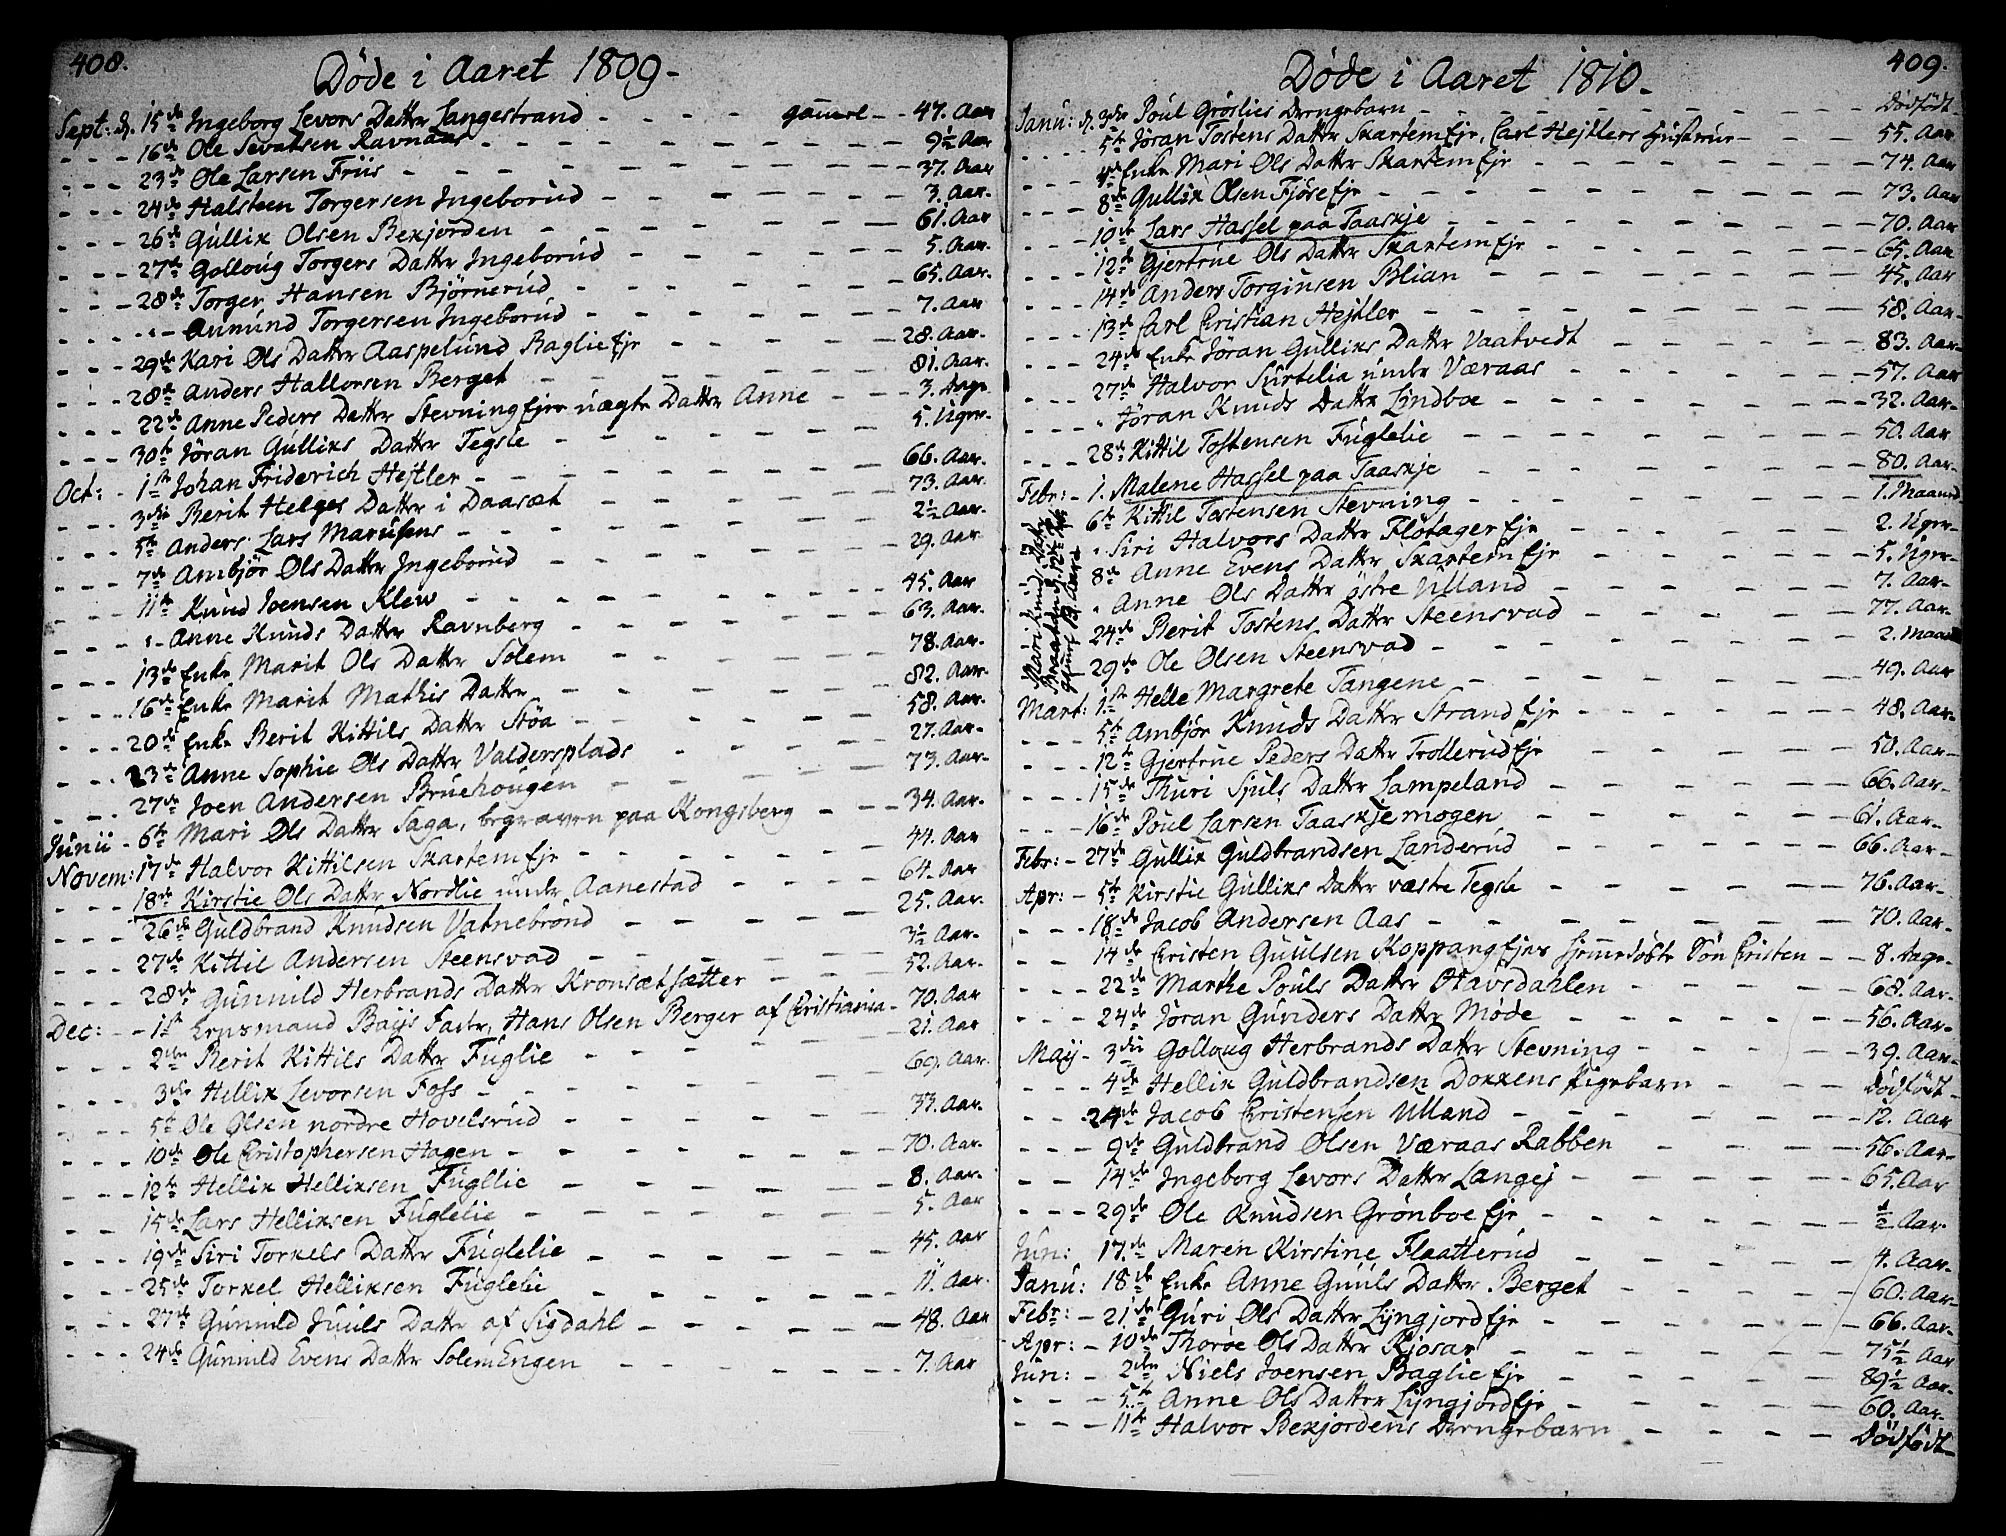 408.
Døde i Aaret 1809.
Sept: d. 15de Ingeborg Levors Datter Langestrand - - - - gammel - - 47. Aar
- - - 16de Ole Sevatsen Ravnaas - - - 9½ Aar
- - - 23de Ole Larsen Friis - - - 37. Aar
- - - 24de Halsteen Torgersen Ingeborud - - - 3. Aar.
- - - 26de Gullik Olsen Bekjorden - - - 61. Aar
- - - 27de Golloug Torgers Datter Ingeborud - - - 5. Aar.
- - - 28de Torger Hansen Bjørnerud - - - 65. Aar.
- - - Anund Torgersen Ingeborud - - - 7. Aar
- - - 29de Kari Ols Datter Aaspelund Baglie Eje - - - 28. Aar.
- - - 28de Anders Hallorsen Berget - - - 81. Aar.
- - - 22de Anne Peders Datter Stevning Ejes uægte Datter Anne - - 3. Dage
- - - 30te Jøran Gulliks Datter Tegsle - - - 5. Uger.
Oct: - 1ste Johan Friderich Hejtler - - - 66. Aar.
- - - 3die Berit Helges Datter i Daaset - - - 73. Aar.
- - - 5te Anders Lars Marusens - - - 2½ Aar.
- - - 7de Ambjør Ols Datter Ingeborud - - - 29. Aar.
- - - 11te Knud Joensen Klew - - - 45. Aar
- - - Anne Knuds Datter Ravnberg - - - 63. Aar.
- - - 13de Enke Marit Ols Datter Solem - - - 78. Aar.
- - - 16de Enke Marit Mathis Datter - - - 82. Aar.
- - - 20de Enke Berit Kittils Datter Støa - - - 58. Aar.
- - - 23de Anne Sophie Ols Datter Valdersplads - - - 27. Aar.
- - - 27de Joen Andersen Bruehougen - - - 73. Aar.
Junii - 6te Mari Ols Datter Saga, begraven paa Kongsberg - - - 34. Aar.
Novem: 17de Halvor Kittilsen Skartem Eje - - - 44. Aar
- - - 18de Kirstie Ols Datter Nordlie under Aanestad - - - 64. Aar
- - - 26de Guldbrand Knudsen Vatnebrønd - - - 25. Aar.
- - - 27de Kittil Andersen Steensvad - - - 3½ Aar.
- - - 28de Gunnild Herbrands Datter Kronsætsætter - - - 52. Aar.
Dec: - - 1ste Bays Faster, Hans Olsen Berger af Christiania - 70. Aar
- - - 2den Berit Kittils Datter Fuglie - - - 21. Aar
- - - 3die Hellik Levorsen Foss - - - 69. Aar.
- - - 5te Ole Olsen nordre Hovelsrud - - - 33. Aar.
- - - 10de Ole Christophersen Hagen - - - 70. Aar.
- - - 12te Hellik Helliksen Fugllie - - - 8. Aar.
- - - 15de Lars Helliksen Fuglelie - - - 5. Aar
- - - 19de Siri Torkels Datter Fuglelie - - - 45. Aar
- - - 25de Torkel Helliksen Fuglelie - - - 11. Aar.
- - - 27de Gunnild Juuls Datter af Sigdahl - - - 48. Aar
- - - 24de Gunnild Evens Datter Solem Engen - - - 7. Aar
409.
Døde i Aaret 1810.
Janu: d. 3die Poul Grøslies Drengebarn - - - Dødfødt
- - - 5te Jøran Tostens Datter Skartem Eje, Carl Hejtlers Hustrue - - 55. Aar
- - - Enke Mari Ols Datter Skartem Eje - - - 74. Aar
- - - 8de Gullik Olsen Fjøse Eje - - - 73. Aar
- - - 10de Lars Hassel paa Taaskje - - - 70. Aar
- - - 12te Gjertrue Ols Datter Skartem Eje - - - 65. Aar
- - - 14de Anders Torginsen Blian - - - 45. Aar
- - - 13de Carl Christian Hejtler - - - 58. Aar
- - - 24de Enke Jøran Gulliks Datter Vaatvedt - - - 83. Aar
- - - 27de Halvor Surtelia under Væraas - - - 57. Aar
- - - Jøran Knuds Datter Lyndboe - - - 32. Aar
- - - 28de Kittil Tostensen Fuglelie - - - 50. Aar
Febr: - 1. Malene Hassel paa Taaskje - - - 80. Aar.
6te Kittil Tostensen Stevning - - - 1. Maaned
Siri Halvors Datter Fløtager Eje - - - 2. Uger
8de Anne Evens Datter Skartem Eje - - - 5. Uger
Anne Ols Datter østre Ulland - - - 7. Aar.
24de Berit Tostens Datter Steensvad - - - 77. Aar
29de Ole Olsen Steensvad - - - 2. Maan
Mari Knuds Datter
Braaten d. 12te
19 Aar
Mart: 1ste Helle Margrete Tangene - - - 49. Aar
- - - 5te Ambjør Knuds Datter Strand Eje - - - 48. Aar
- - - 12te Gjertrue Peders Datter Trollerud Eje - - - 50. Aar
- - - 15de Thuri Sjuls Datter Lampeland - - - 66. Aar
- - - 16de Poul Larsen Taaskjemogen - - - 61. Aar
Febr: - 27de Gullik Guldbrandsen Landerud - - - 66. Aar
Apr: - 5te Kirstie Gulliks Datter væstre Tegsle - - - 76. Aar
- - - 18de Jacob Andersen Aas - - - 70. Aar
- - 14de Christen Guulsen Koppang Ejes hjemmedøbte Søn Christen - - 8. Dage
- - - 22de Marthe Pouls Datter Havsdahlen - - - 68. Aar.
- - - 24de Jøran Gunders Datter Møde - - - 56. Aar
May - 3die Golloug Herbrands Datter Stevning - - - 39. Aar
- - - 4de Hellik Guldbrandsen Dokkens Pigebarn - - - Dødfødt
- - - 24de Jacob Christensen Ulland - - - 12. Aar
- - - 9de Guldbrand Olsen Væraas Rabben - - - 56. Aar
- - 14de Ingeborg Levors Datter Langej - - - 65. Aar
- - - 29de Ole Knudsen Grønboe Eje - - - ½ Aar
Jun: 17de Maren Kirstine Flaatterud - - - 4. Aar
Janu: 18de Enke Anne Guuls Datter Berget - - - 60. Aar
Febr: - 21de Guri Ols Datter Lyngjord Eje - - - 66. Aar
Apr: - 10de Thorøe Ols Datter Kjosar - - - 75½ Aar
Jun: - 2den Niels Joensen Baglie Eje - - - 89½ Aar
- - - 5te Anne Ols Datter Lyngjord Eje - - - 60. Aar
- - - 11te Halvor Bekjordens Drengebarn - - - Dødfødt